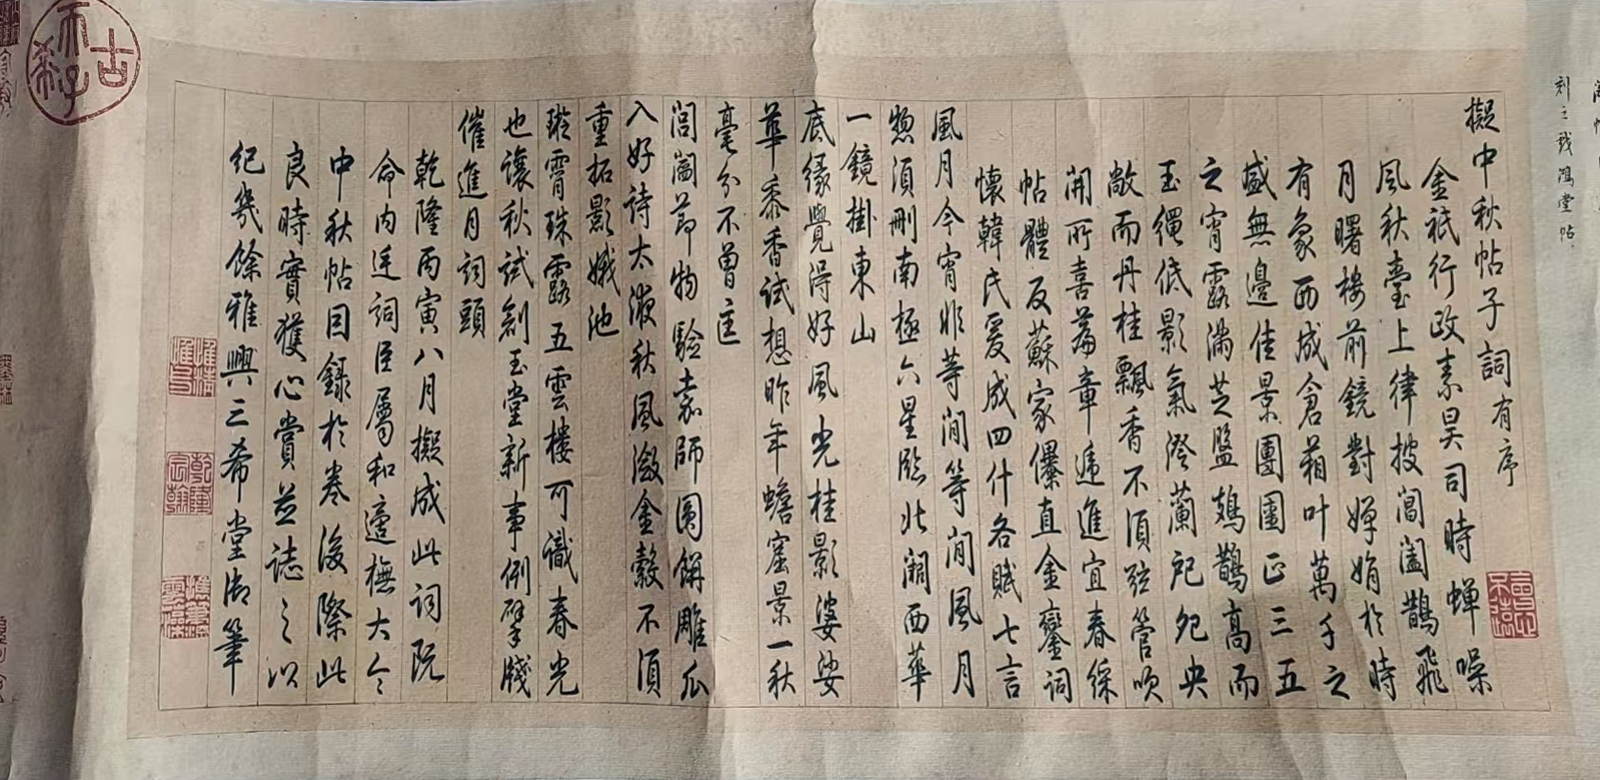 刻之戏鴻堂帖
擬中秋帖子詞有序
金祇行政素昊司時蟬噪
風秋臺上律披閶闔鵲飛
月曙樓前鏡對嬋娟於時
有象西成倉葙叶萬千之
盛無邊佳景團圞正三五
之宵露滿芝盤鳷鵲高而
玉繩低影氣澄蘭戺兜央
敞而丹桂飄香不須弦管吹
開所喜篇章遞進宜春綵
帖體反蘇家儤直金鑾詞
懷韓氏爰成四什各賦七言
風月今宵非等閒等閒風月
惣須刪南極六星臨北闕西華
一鏡掛東山
底緣覺得好風光桂影婆娑
華黍香試想昨年蟾窟景一秋
毫分不曾𡉄
閶闔節物驗嘉師圓餅雕瓜
入好詩太液秋風激金縠不須
重拓影娥池
璇霄珠露五雲樓可識春光
也讓秋試創玉堂新事例擘牋
催進月詞頭
乾隆丙寅八月擬成此詞既
命內廷詞臣屬和適橅大令
中秋帖目錄於卷後際此
良時實獲心賞並誌之以
紀幾餘雅興三希堂御筆
古希天子
乾隆宸翰